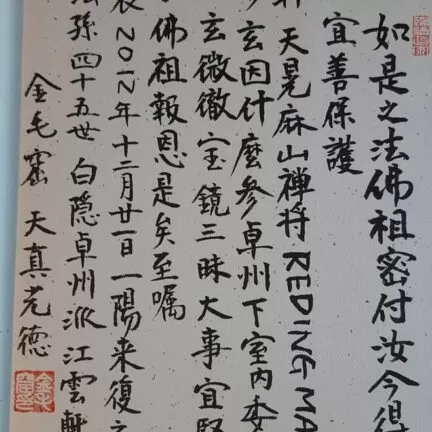 如是之法佛祖密付汝今得
宜善保護
天晃麻山禅将 REDING MA
玄因什麼參卓州下室内委
玄微徹宝鏡三昧大事宜堅
佛祖報恩是矣至嘱
2012年十二月廿一日一陽来復之
法孫四十五世白隠卓州派江雲軒
金毛窟 天真光徳